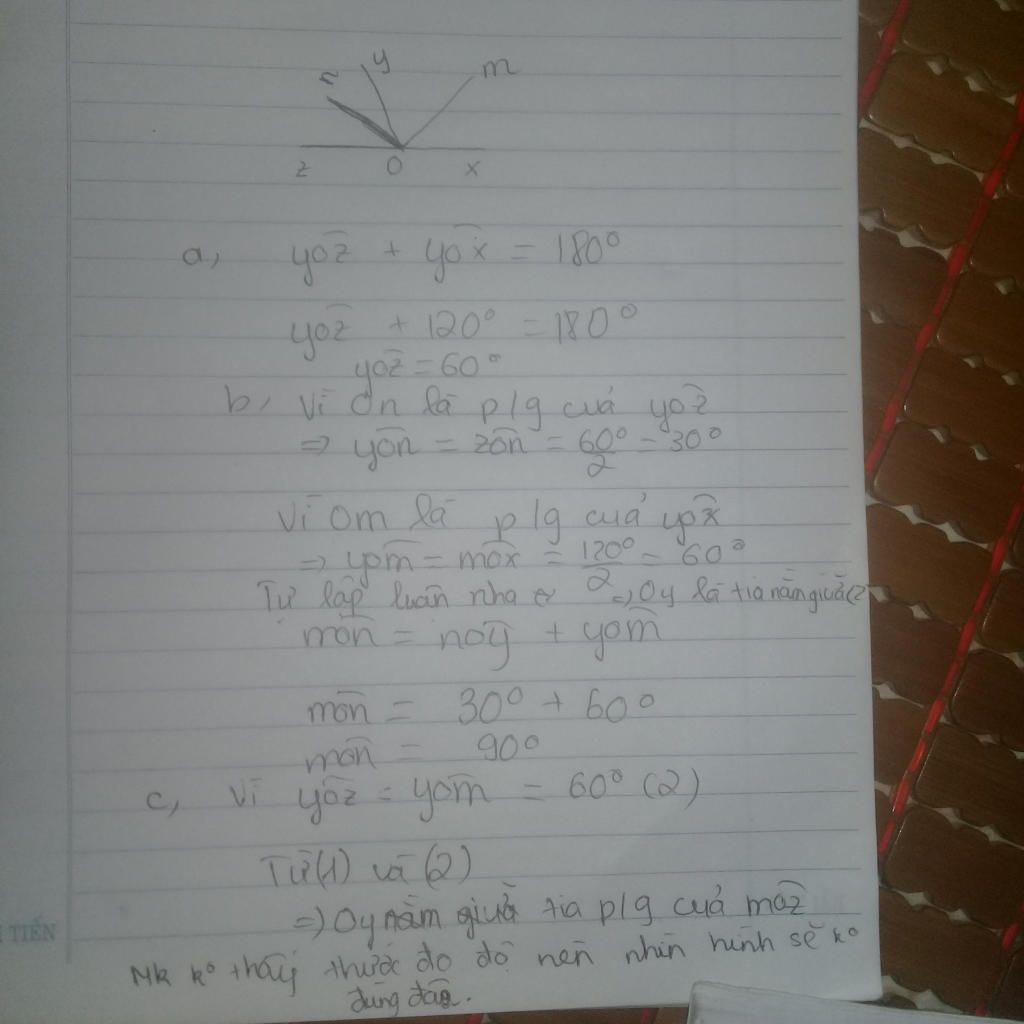 n y m
z O x
a, yOz + yOx = 180°
yOz + 120° = 180°
yOz = 60°
b, Vì On là p/g cuả yOz
=> yOn = zOn = 60°/2 = 30°
Vì Om là p/g cuả yOx
=> yOm = mOx = 120°/2 = 60°
Tự lập luận nha => Oy là tia nằm giữa
mOn = nOy + yOm
mOn = 30° + 60°
mOn = 90°
c, Vì yOz = yOm = 60° (2)
Từ (1) và (2)
=> Oy nằm giuã tia p/g cuả mOz
Mk k° thấy thước đo độ nên nhìn hình sẽ k°
đúng đâu.
TIẾN